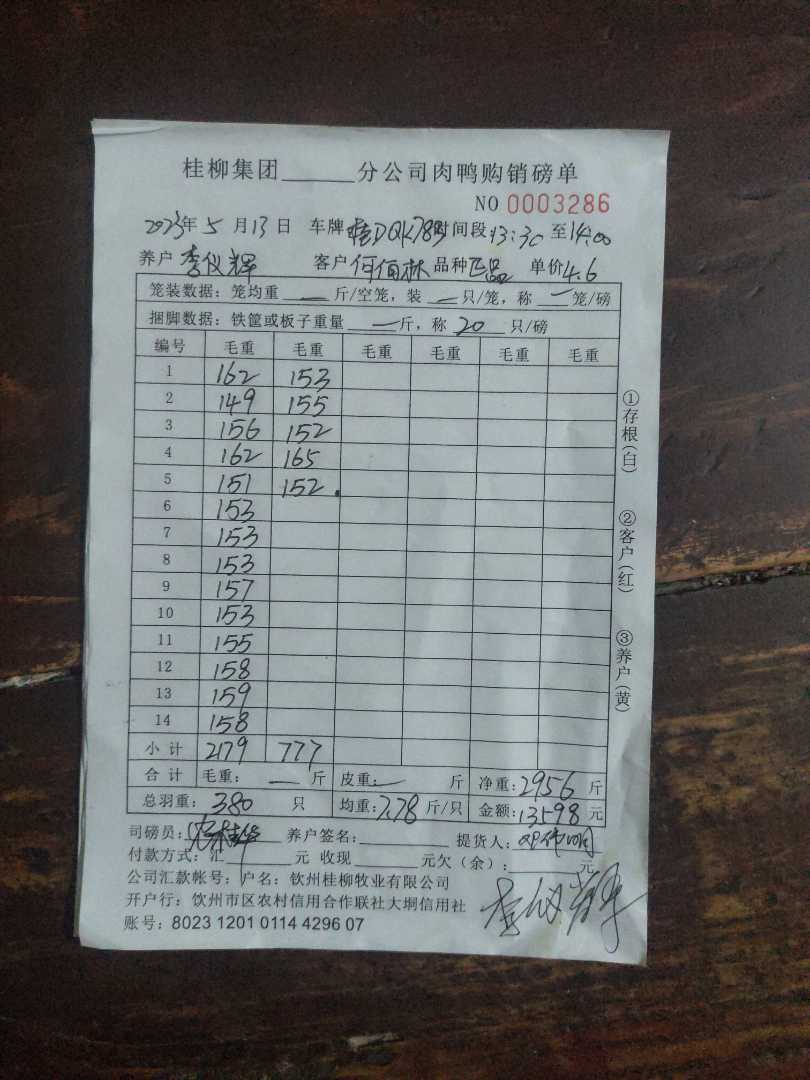 桂柳集团______分公司肉鸭购销磅单
NO 0003286
2023年5月13日 车牌 桂DQK783 时间段 13:30 至 14:00
养户 李仪辉 客户 何伯林 品种 正品 单价 4.6
笼装数据：笼均重 — 斤/空笼，装 — 只/笼，称 — 笼/磅
捆脚数据：铁筐或板子重量 — 斤，称 20 只/磅
编号 毛重 毛重 毛重 毛重 毛重 毛重
1 162 153
2 149 155
3 156 152
4 162 165
5 151 152
6 153
7 153
8 153
9 157
10 153
11 155
12 158
13 159
14 158
小计 2179 777
合计 毛重：— 斤 皮重：— 斤 净重：2956 斤
总羽重：380 只 均重：7.78 斤/只 金额：13598 元
司磅员： 养户签名：________ 提货人：
付款方式：汇______元 收现______元欠（余）：______元
公司汇款帐号：户名：钦州桂柳牧业有限公司
开户行：钦州市区农村信用合作联社大垌信用社
账号：8023 1201 0114 4296 07
李仪辉
①存根（白）
②客户（红）
③养户（黄）